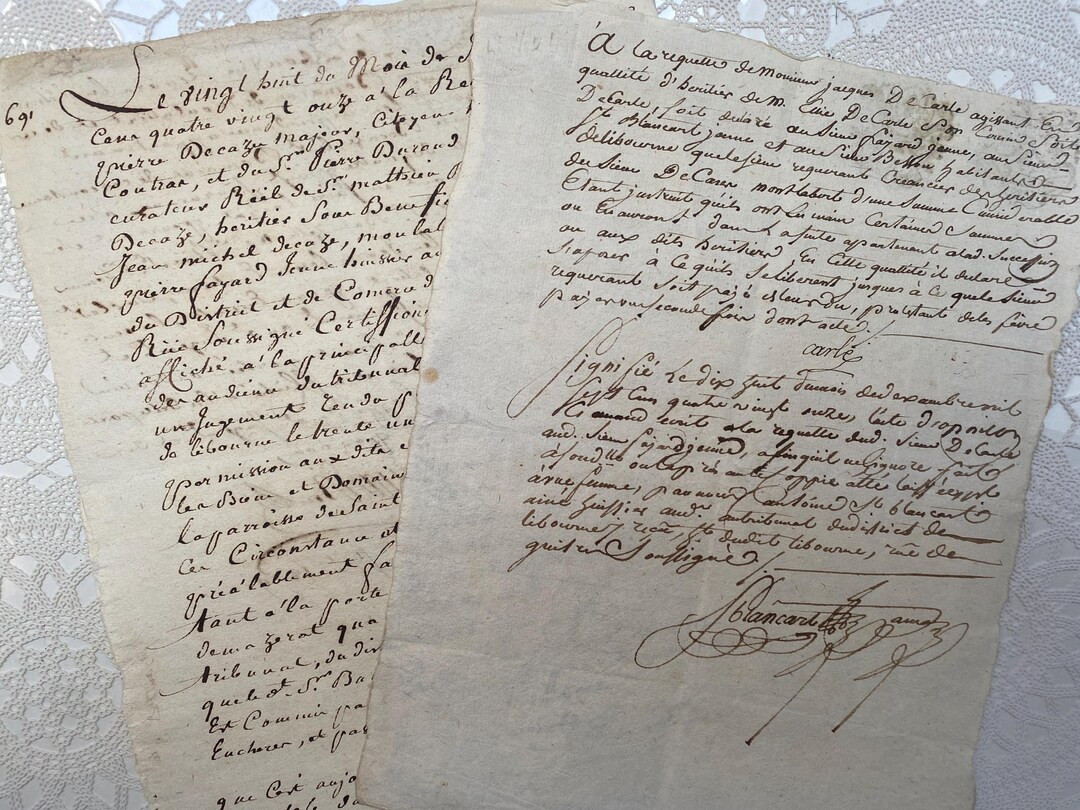 691
Le vingt huit du Mois de
Cens quatre vingt onze à la Re
pierre Decaze majeur, Citoyen
Coutras, et du Sr. Pierre Durand
curateur Réel de Sr. mathieu
Decaze, heritier Sous Benefi
Jean michel decaze, moulat
pierre fayard Jeune huissier au
du District et de Comerce d
Rüe Soussigné Certiffions
affiché, à la principalle
des audiance du tribunal
un Jugement rendu p
de libourne le trente un
permission aux dits
les Biens et Domain
la parroisse de Saint
Ces Circonstance et
préalablement fa
tant à la porte
de mazerat qua
tribunal, du dis
que le dt. Sr. Ba
Est Commis pa
Encheres, et pas
que C'est aujo
à la requette de Monsieur jacques DeCarle agissant En
quallité d'heritier de M. Elie DeCarle Son
DeCarle, soit declaré au Sieur fajard jeune, au Sieur
St Blancart jeune et au Sieur Besson habitants
de libourne que le sieur requerant Creancier des heritiers
du Sieur DeCazes montlabert d'une Somme Considerable
Etant instruit quils ont En main Certaines Sommes
ou En auront dans La suite appartenant a lad. Succession
ou aux dits heritiers, En Cette quallité il declare
S'oposer à Ce quils Se liberent jusques à Ce que le Sieur
requerant Soit payé de leur du, protestant de les faire
payer une seconde fois dont acte.
carle
Signifié Le dix huit du mois de decembre mil
Sept Cens quatre vingt onze, l'acte d'oposition
Ci amond ecrit a la requette dud. Sieur DeCarle
aud. Sieur fajard jeune, afin quil ne lignore fait
a son dlle ou apres ante Coppie atte laissé parlé
à une femme, par nous antoine St blancart
ainé huissier aud. au tribunal du district de
libourne y reçu, ht. dudit libourne, rüe de
guitres Soussigné
St blancart ainé